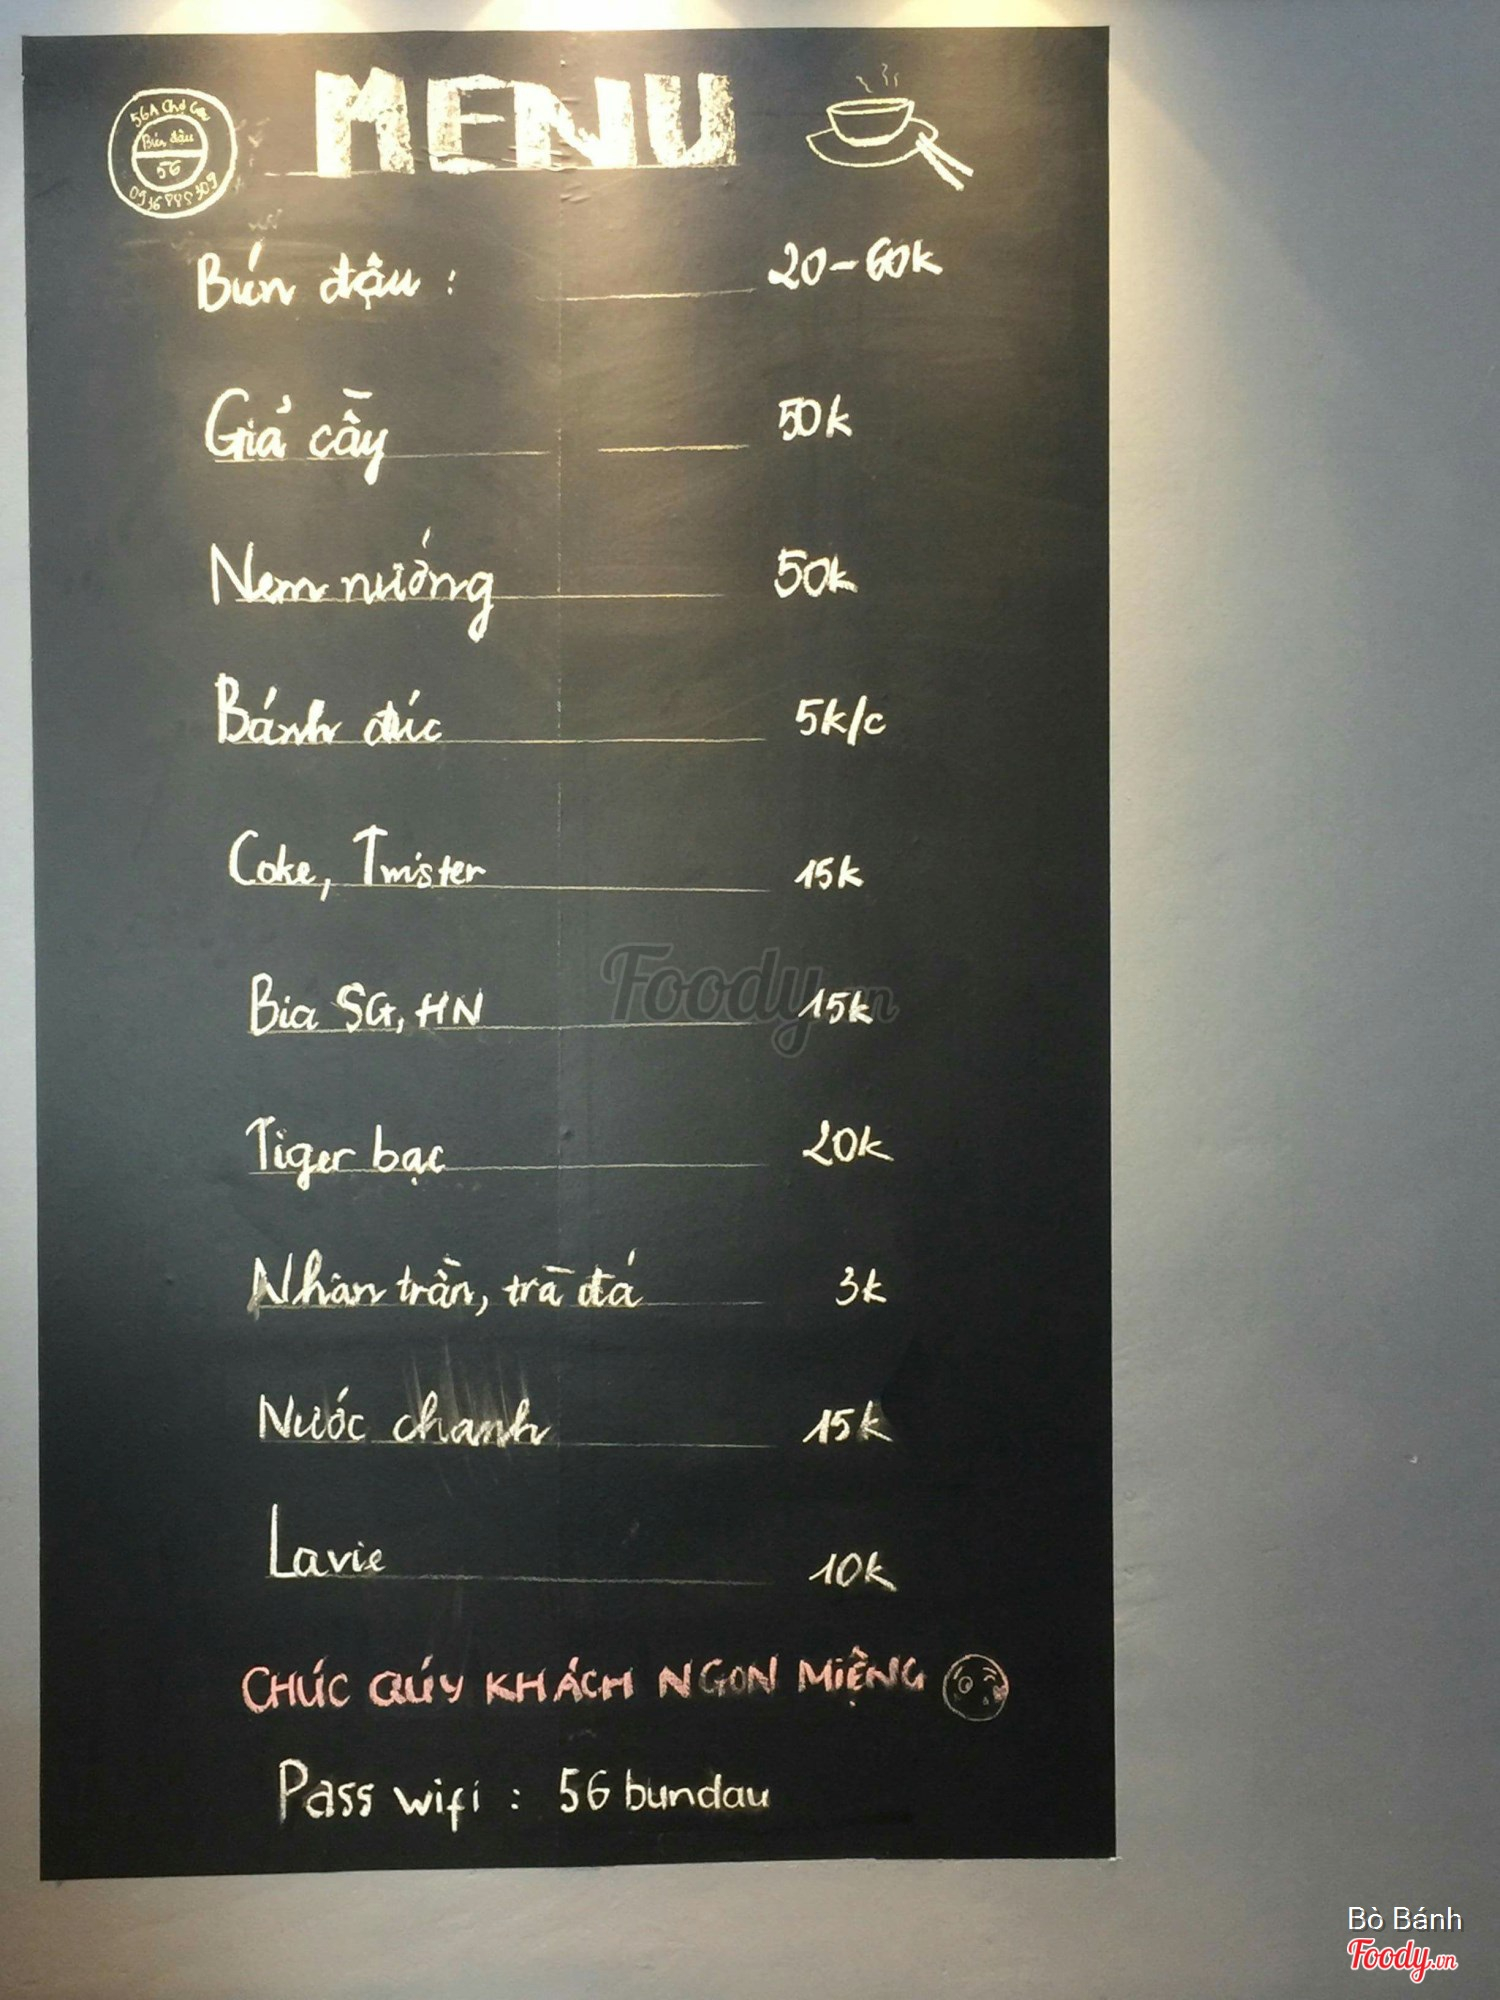 MENU
56A Chợ Gạo
Bún đậu
56
0936 888 309
Bún đậu : 20-60k
Giả cầy 50k
Nem nướng 50k
Bánh đúc 5k/c
Coke, Twister 15k
Bia SG, HN 15k
Tiger bạc 20k
Nhân trần, trà đá 3k
Nước chanh 15k
Lavie 10k
CHÚC QÚY KHÁCH NGON MIỆNG
Pass wifi : 56 bundau
Foody.vn
Bò Bánh
Foody.vn